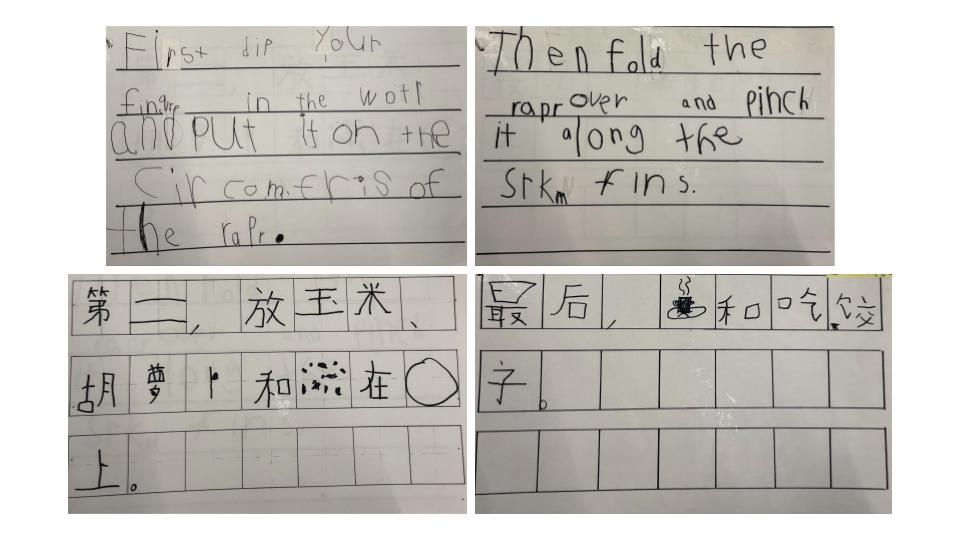 First dip your
fingre in the wotr
and put it on the
Circomfris of
the rapr.
Then fold the
rapr over and pinch
it along the
Srkm fins.
第二, 放玉米、
胡萝卜和在
上。
最后, 和吃饺
子。